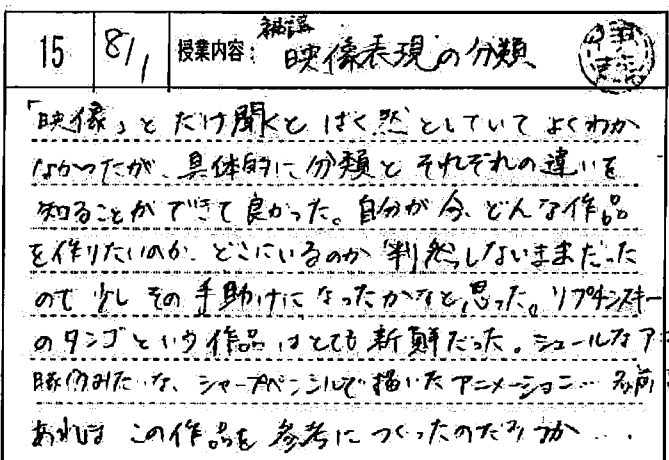 補講
15 8/1 授業内容: 映像表現の分類
「映像」とだけ聞くとばく然としていてよくわか
なかったが、具体的に分類とそれぞれの違いを
知ることができて良かった。自分が今、どんな作品
を作りたいのか、どこにいるのか判然しないままだった
ので少しその手助けになったかなと思った。リプチンスキー
のタンゴという作品はとても新鮮だった。シュールなア
みたいな、シャープペンシルで描いたアニメーション… 名前
あれはこの作品を参考につくったのだろうか…